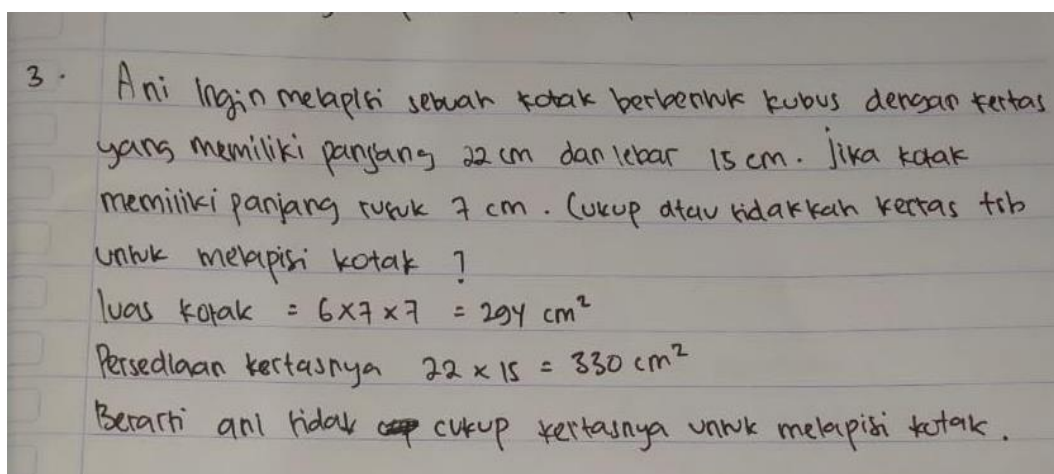 3. Ani Ingin melapisi sebuah kotak berbentuk kubus dengan kertas
yang memiliki panjang 22 cm dan lebar 15 cm. Jika kotak
memiliki panjang rusuk 7 cm. Cukup atau tidakkah kertas tsb
untuk melapisi kotak ?
luas kotak = 6×7×7 = 294 cm²
Persediaan kertasnya 22 × 15 = 330 cm²
Berarti ani tidak cukup kertasnya untuk melapisi kotak.